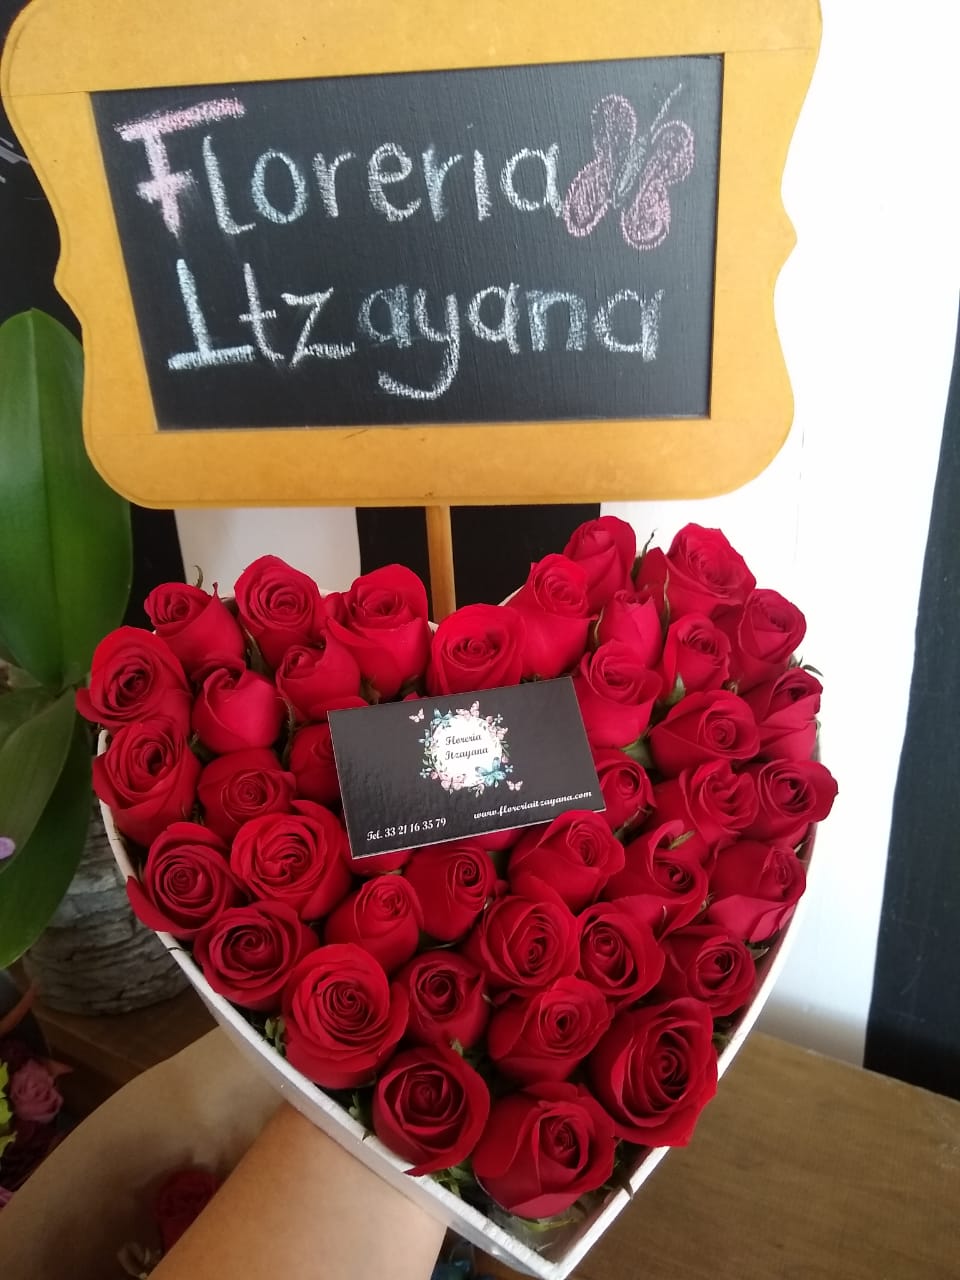 Floreria
Itzayana
Floreria
Itzayana
Tel. 33 21 16 35 79
www.floreriaitzayana.com